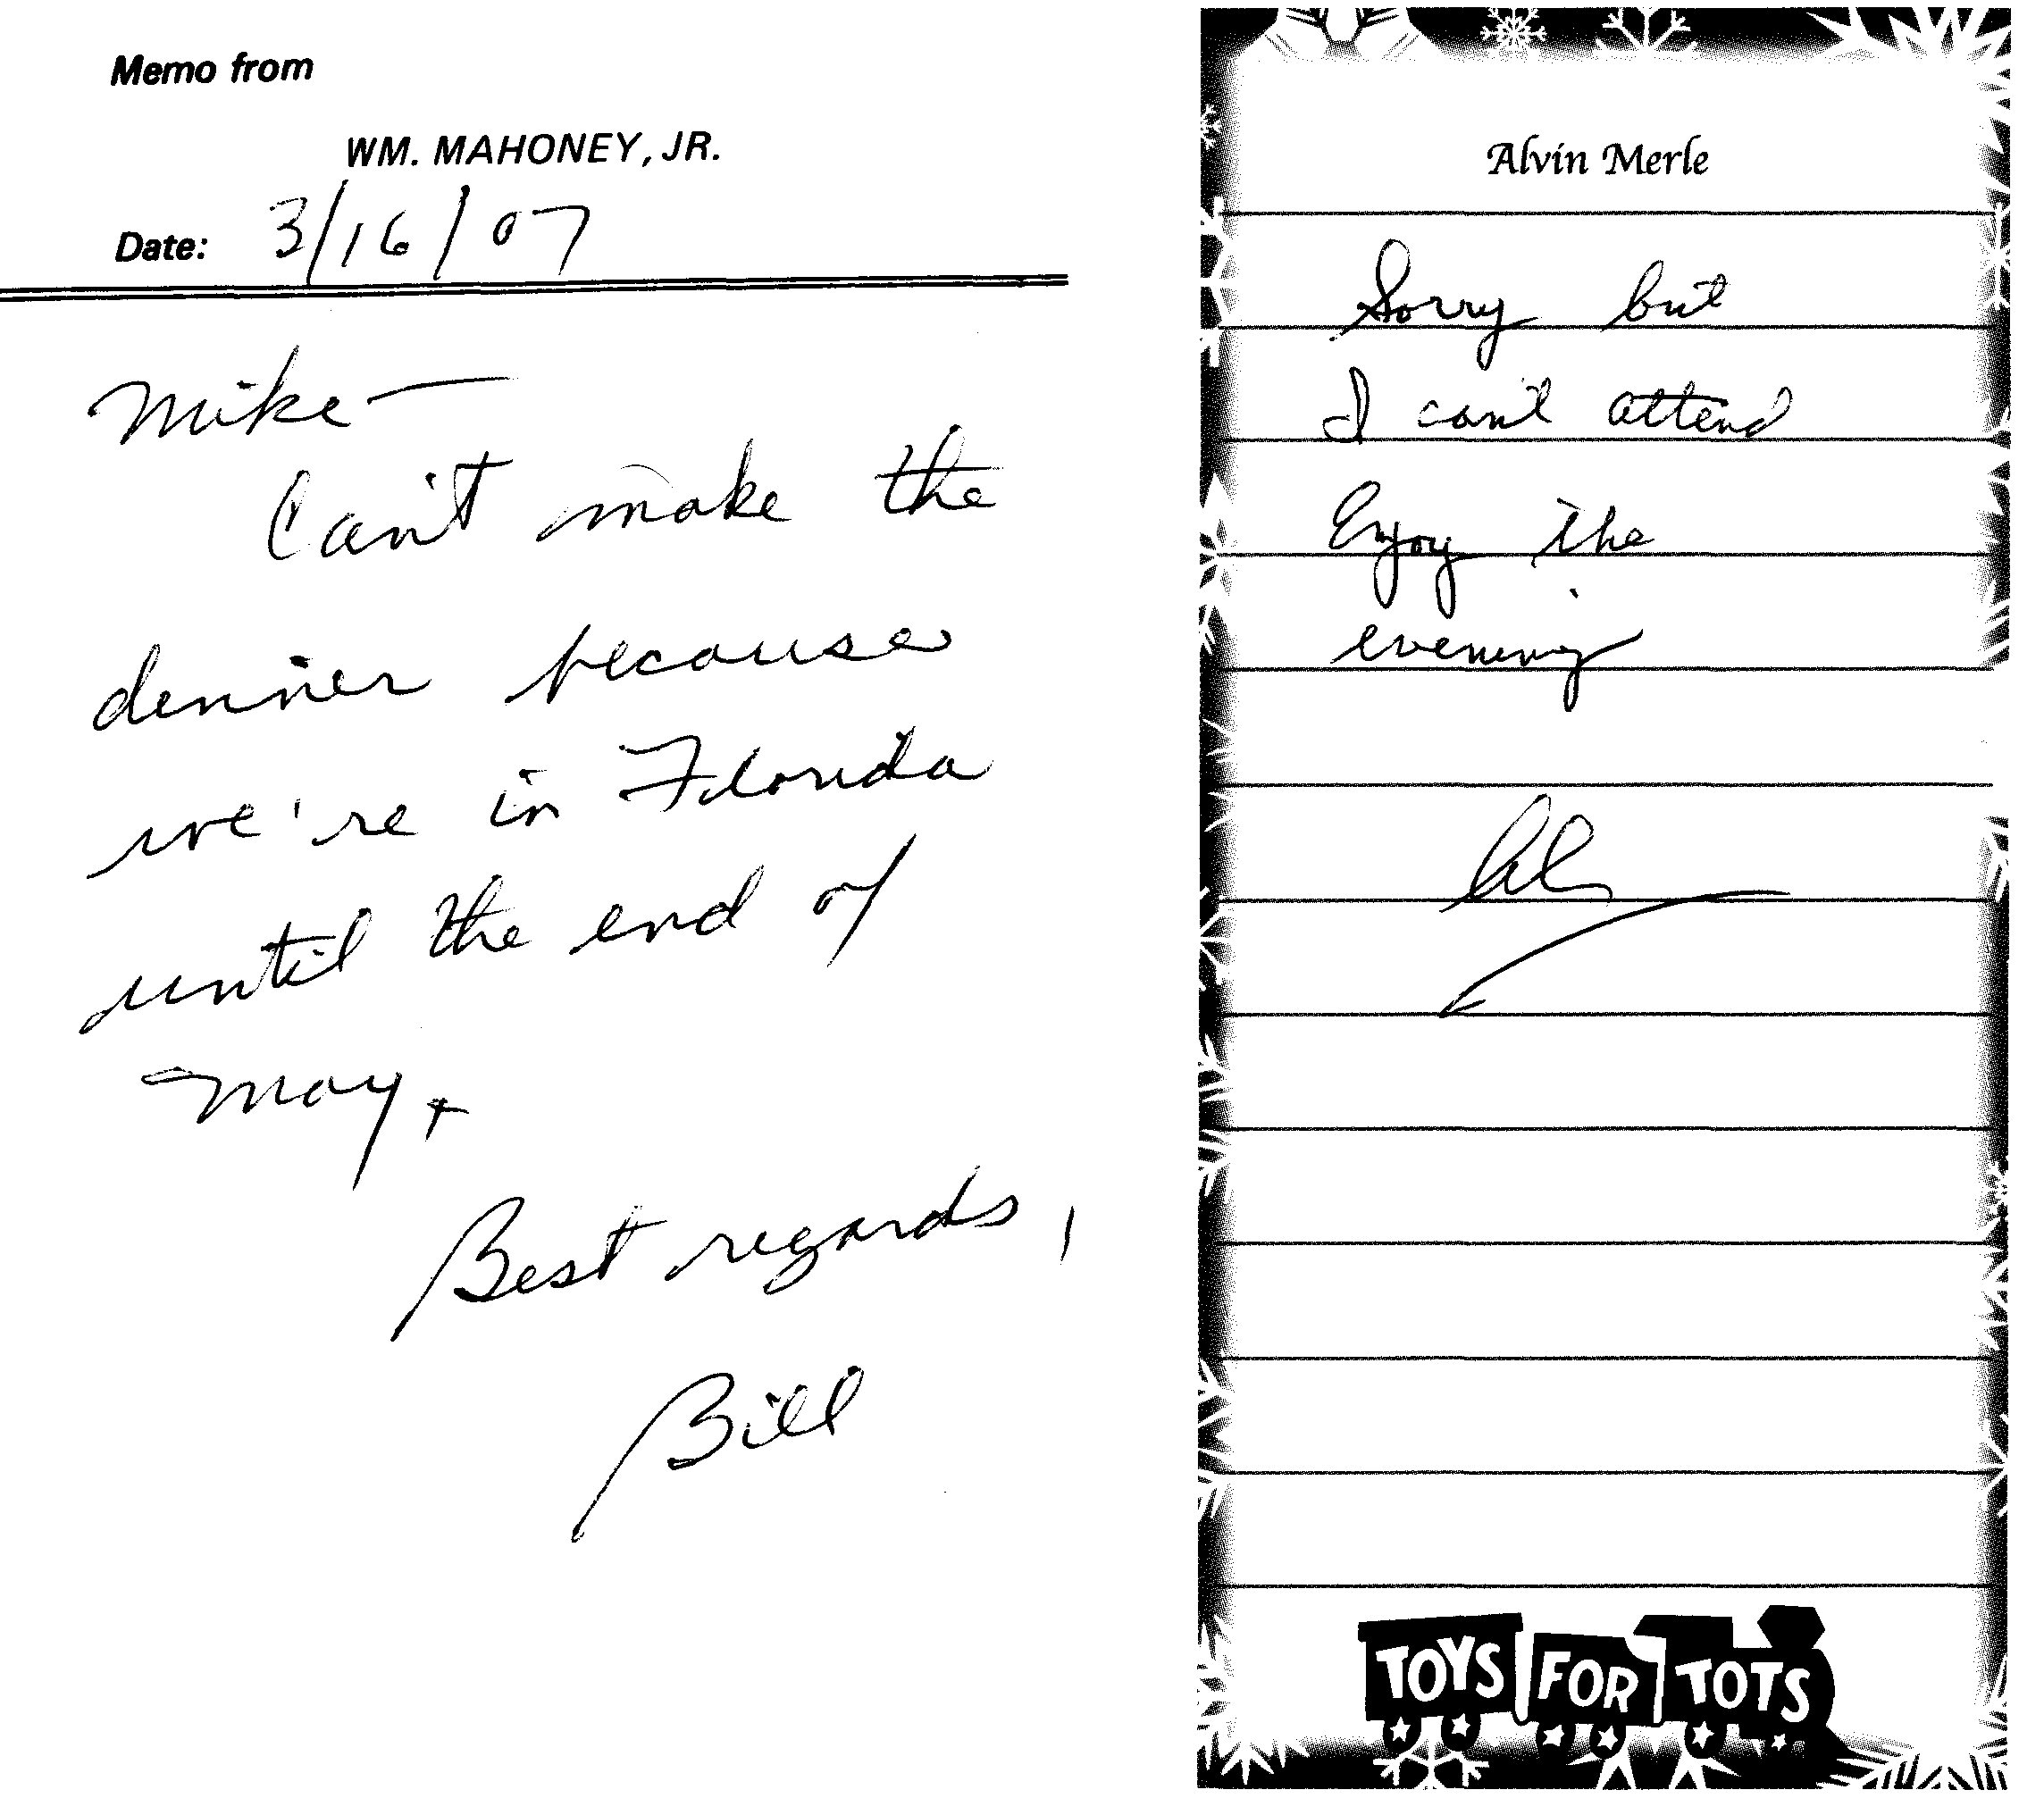 Memo from
WM. MAHONEY, JR.
Date: 3/16/07
Mike —
Can't make the
dinner because
we're in Florida
until the end of
May.
Best regards,
Bill
Alvin Merle
Sorry but
I can't attend
Enjoy the
evening
Al
TOYS FOR TOTS